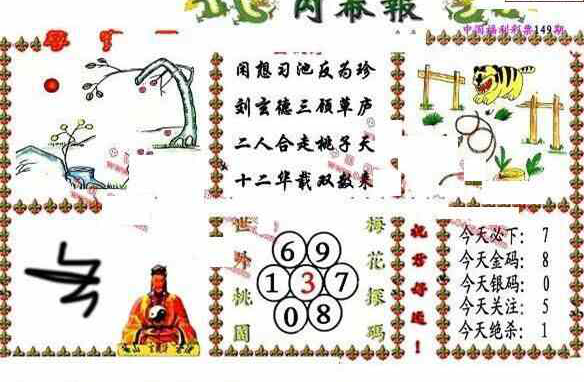 内幕報
中国福利彩票149期
闲想习池反为珍
刘玄德三顾草庐
二人合走桃子天
十二华载双数来
世外桃園
6 9
1 3 7
0 8
梅花探碼
祝君好运！
今天必下：7
今天金码：8
今天银码：0
今天关注：5
今天绝杀：1